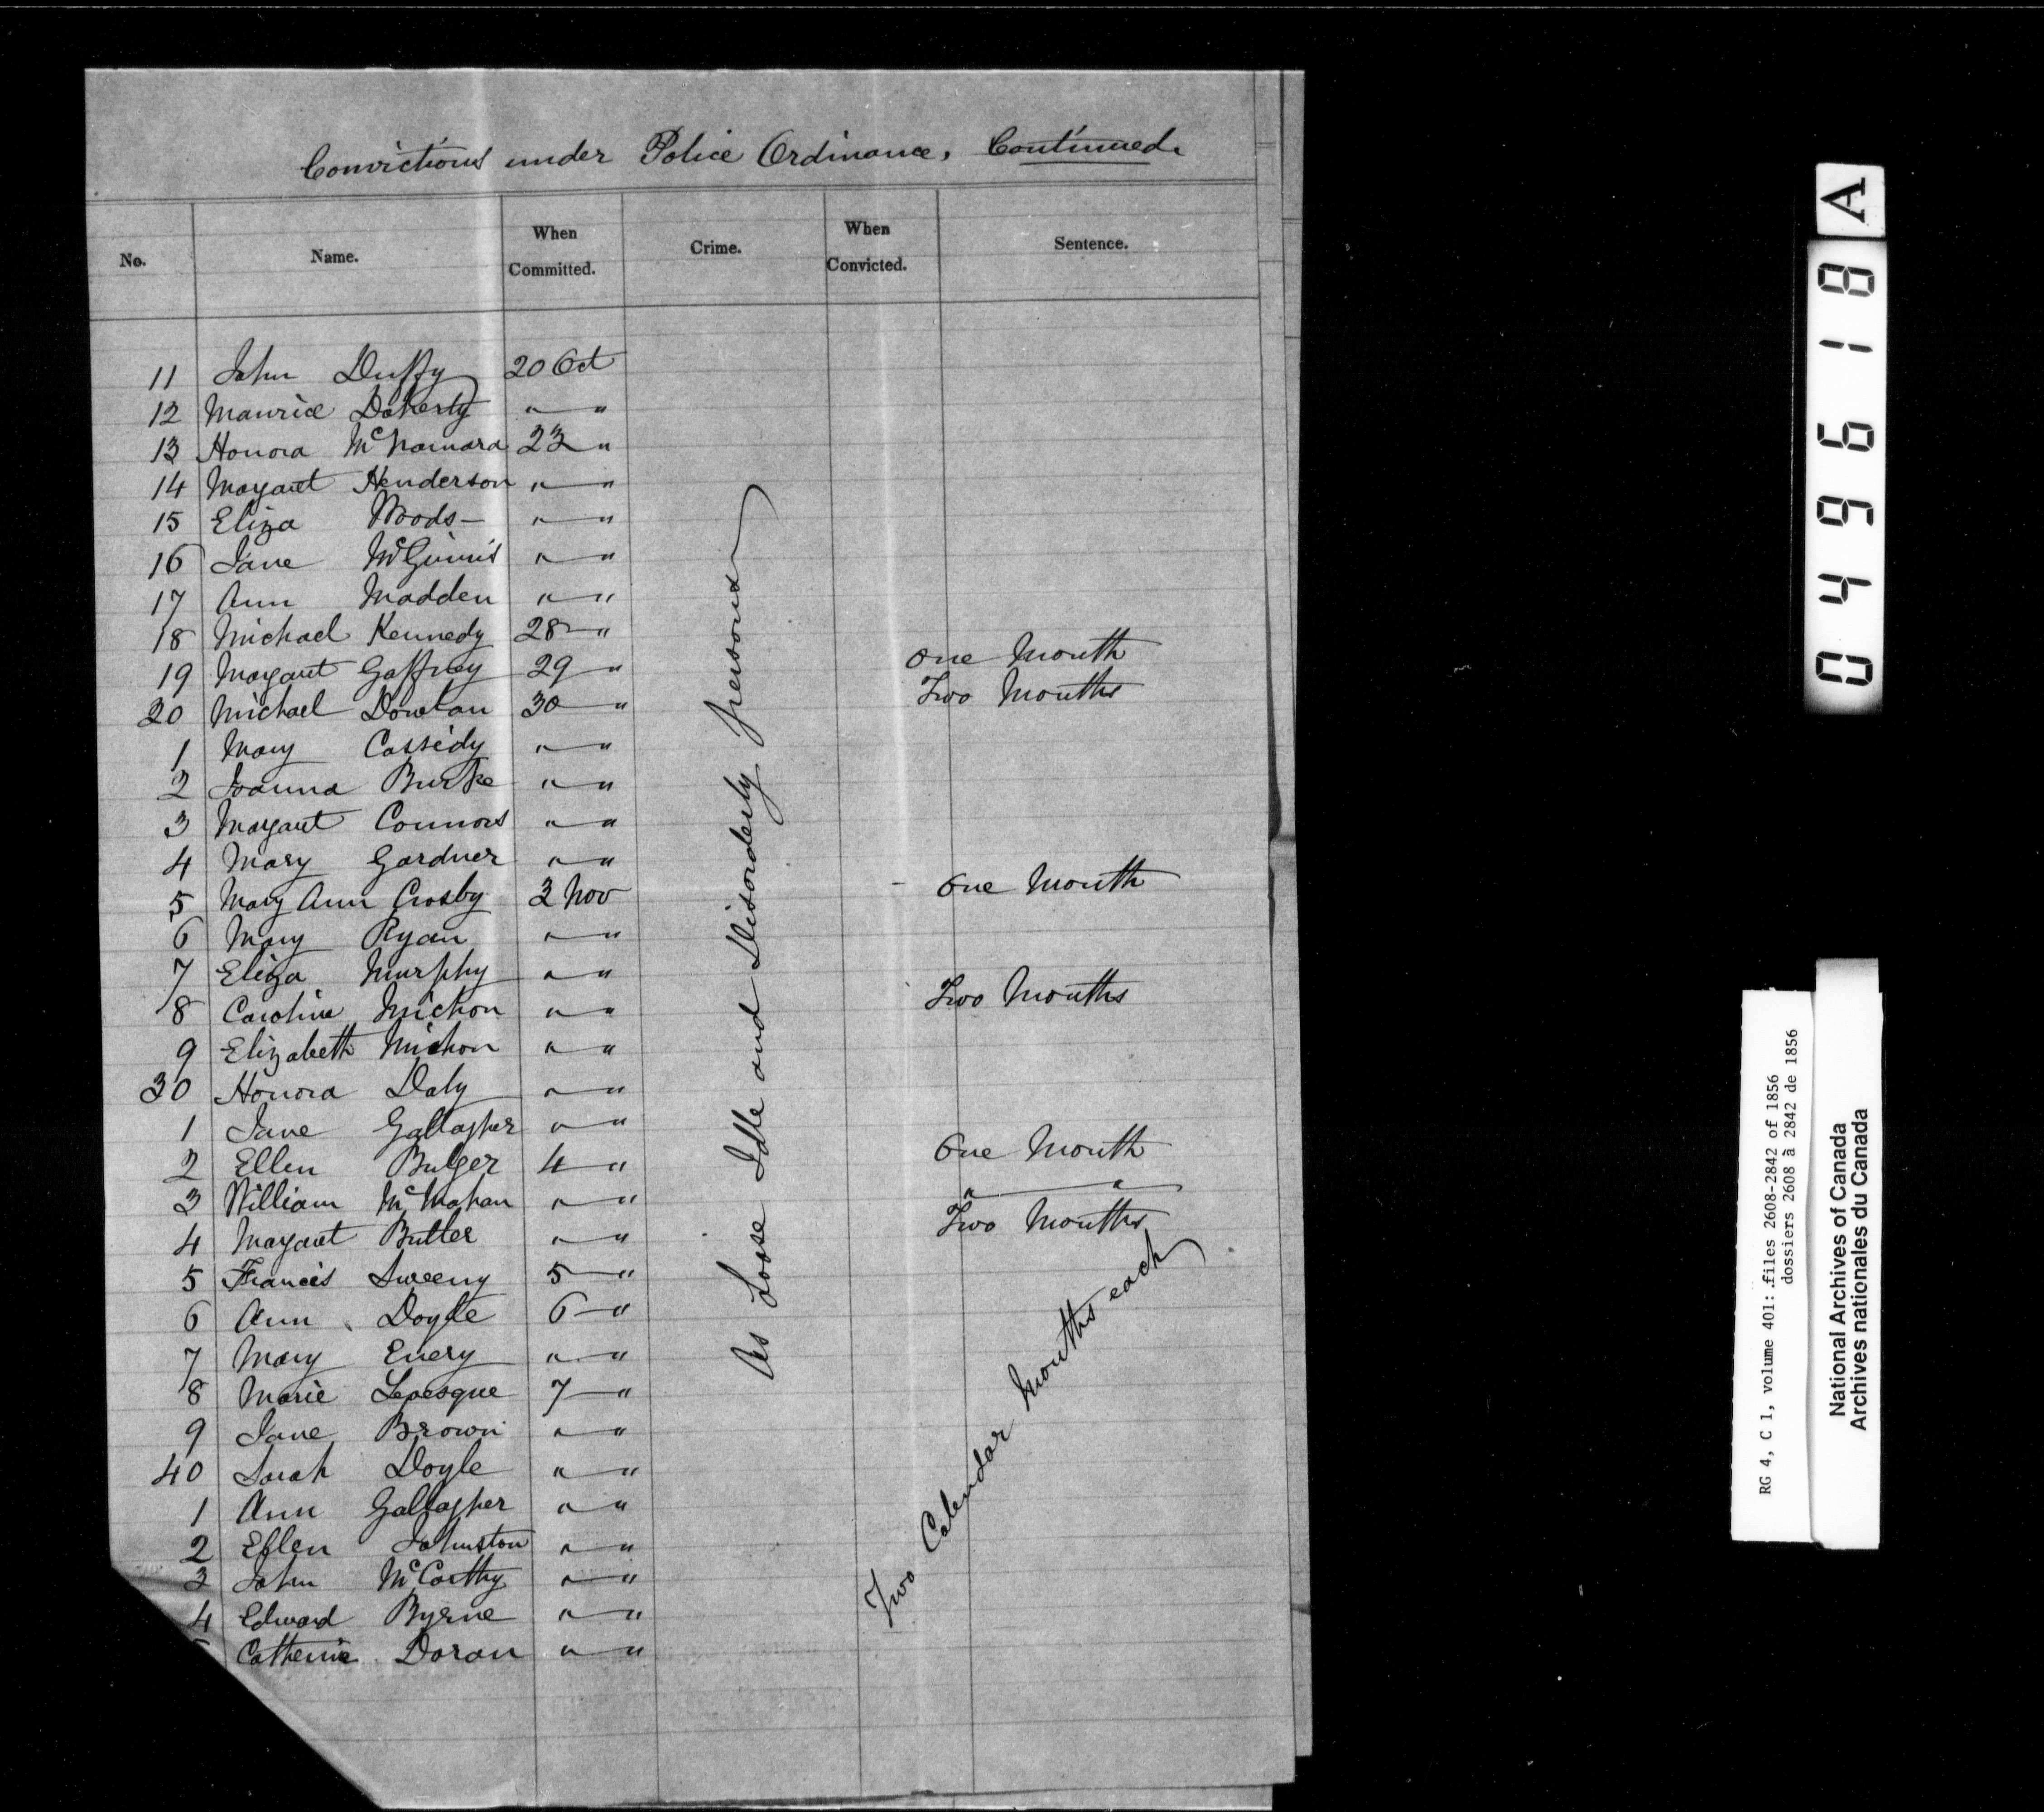 Convictions under Police Ordinance, Continued.
No. Name. When Committed. Crime. When Convicted. Sentence.
11 John Duffy 20 Oct
12 Maurice Doherty " "
13 Honora McNamara 23 "
14 Margaret Henderson " "
15 Eliza Woods - " "
16 Jane McGinnis " "
17 Ann Madden " "
18 Michael Kennedy 28 "
19 Margaret Gaffney 29 " One Month
20 Michael Dowlan 30 " Two Months
1 Mary Cassidy " "
2 Joanna Burke " "
3 Margaret Connors " "
4 Mary Gardner " "
5 Mary Ann Crosby 3 Nov - One Month
6 Mary Ryan " "
7 Eliza Murphy " "
8 Caroline Michon " " Two Months
9 Elizabeth Michon " "
30 Honora Daly " "
1 Jane Gallagher " "
2 Ellen Bulger 4 " One Month
3 William McMahan " " " "
4 Margaret Butler " " Two Months
5 Francis Sweeny 5 "
6 Ann Doyle 6 "
7 Mary Enery " "
8 Marie Levesque 7 "
9 Jane Brown " "
40 Sarah Doyle " "
1 Ann Gallagher " "
2 Ellen Johnston " "
3 John McCarthy " "
4 Edward Byrne " "
Catherine Doran " "
As Loose Idle and Disorderly persons
Two Calendar Months each
049618 A
RG 4, C 1, volume 401: files 2608-2842 of 1856
dossiers 2608 à 2842 de 1856
National Archives of Canada
Archives nationales du Canada